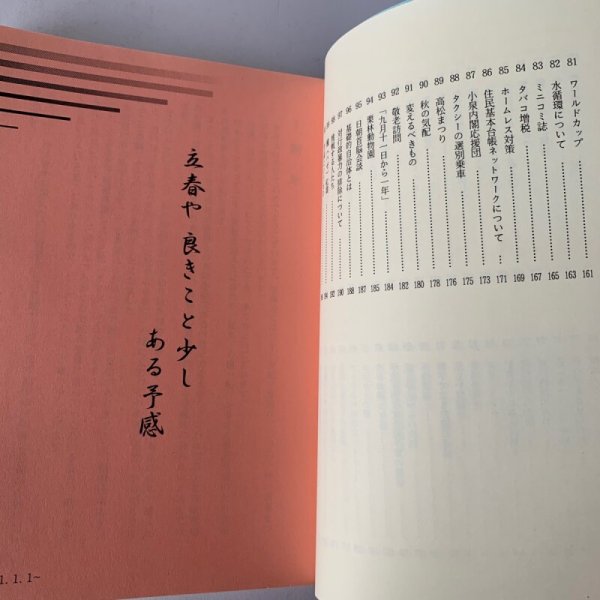 81 ワールドカップ 161
82 水循環について 163
83 ミニコミ誌 165
84 タバコ増税 167
85 ホームレス対策 169
86 住民基本台帳ネットワークについて 171
87 小泉内閣応援団 173
88 タクシーの選別乗車 175
89 高松まつり 176
90 秋の気配 178
91 変えるべきもの 180
92 敬老訪問 182
93 「九月十一日から一年」 184
94 栗林動物園 185
95 日朝首脳会談 187
96 基礎的自治体とは 188
97 対行政暴力の排除について 190
98 192
立春や 良きこと少し
ある予感
1. 1. 1~